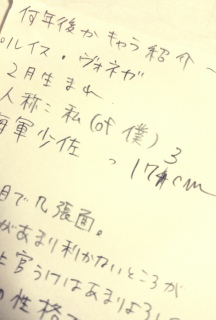 何年後かキャラ紹介
ルイス・ヴォネガ
2月生まれ
人称：私(or 僕)
海軍少佐
173cm
で几帳面。
があまり利かないところが
の性格